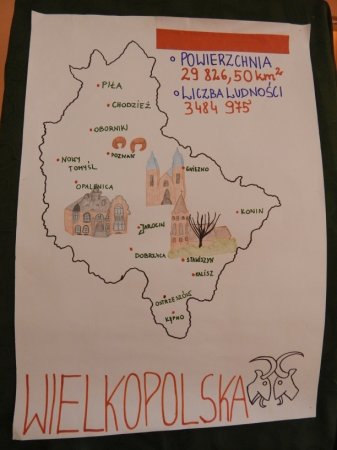 POWIERZCHNIA
29 826,50 km²
LICZBA LUDNOŚCI
3484 975
PIŁA
CHODZIEŻ
OBORNIKI
POZNAŃ
NOWY
TOMYŚL
GNIEZNO
OPALENICA
KONIN
JAROCIN
DOBRZYCA
STAWISZYN
KALISZ
OSTRZESZÓW
KĘPNO
WIELKOPOLSKA